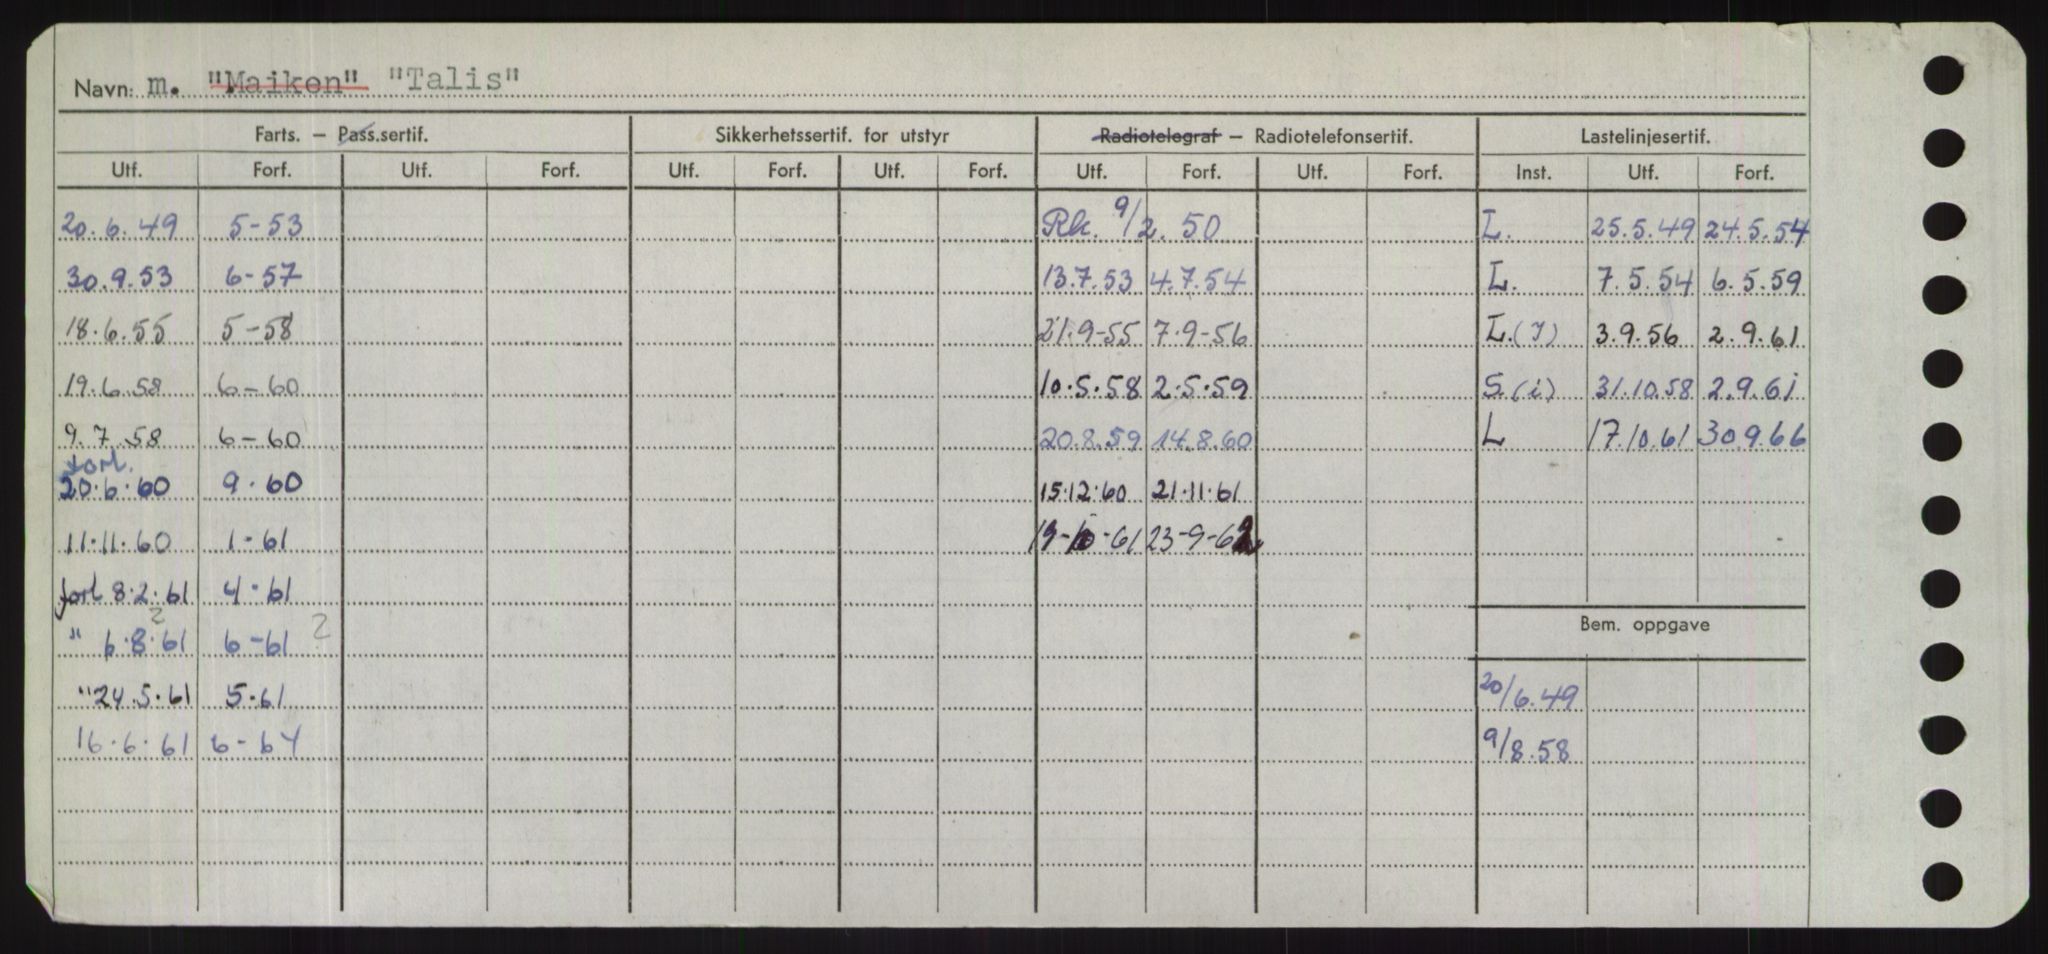 Navn: m. "Maiken" "Talis"
Farts. — Pass.sertif. Sikkerhetssertif. for utstyr Radiotelegraf — Radiotelefonsertif. Lastelinjesertif.
Utf. Forf. Utf. Forf. Utf. Forf. Utf. Forf. Utf. Forf. Utf. Forf. Inst. Utf. Forf.
20.6.49 5-53 Rk. 9/2.50 L. 25.5.49 24.5.54
30.9.53 6-57 13.7.53 4.7.54 L. 7.5.54 6.5.59
18.6.55 5-58 21.9-55 7.9-56 L.(I) 3.9.56 2.9.61
19.6.58 6-60 10.5.58 2.5.59 S.(i) 31.10.58 2.9.61
9.7.58 6-60 20.8.59 14.8.60 L 17.10.61 30.9.66
forl.
20.6.60 9.60 15.12.60 21.11.61
11.11.60 1-61 19-10-61 23-9-62
forl 8.2.61 4.61
2
" 6.8.61 6-61 2
Bem. oppgave
"24.5.61 5.61 20/6.49
16.6.61 6-64 9/8.58